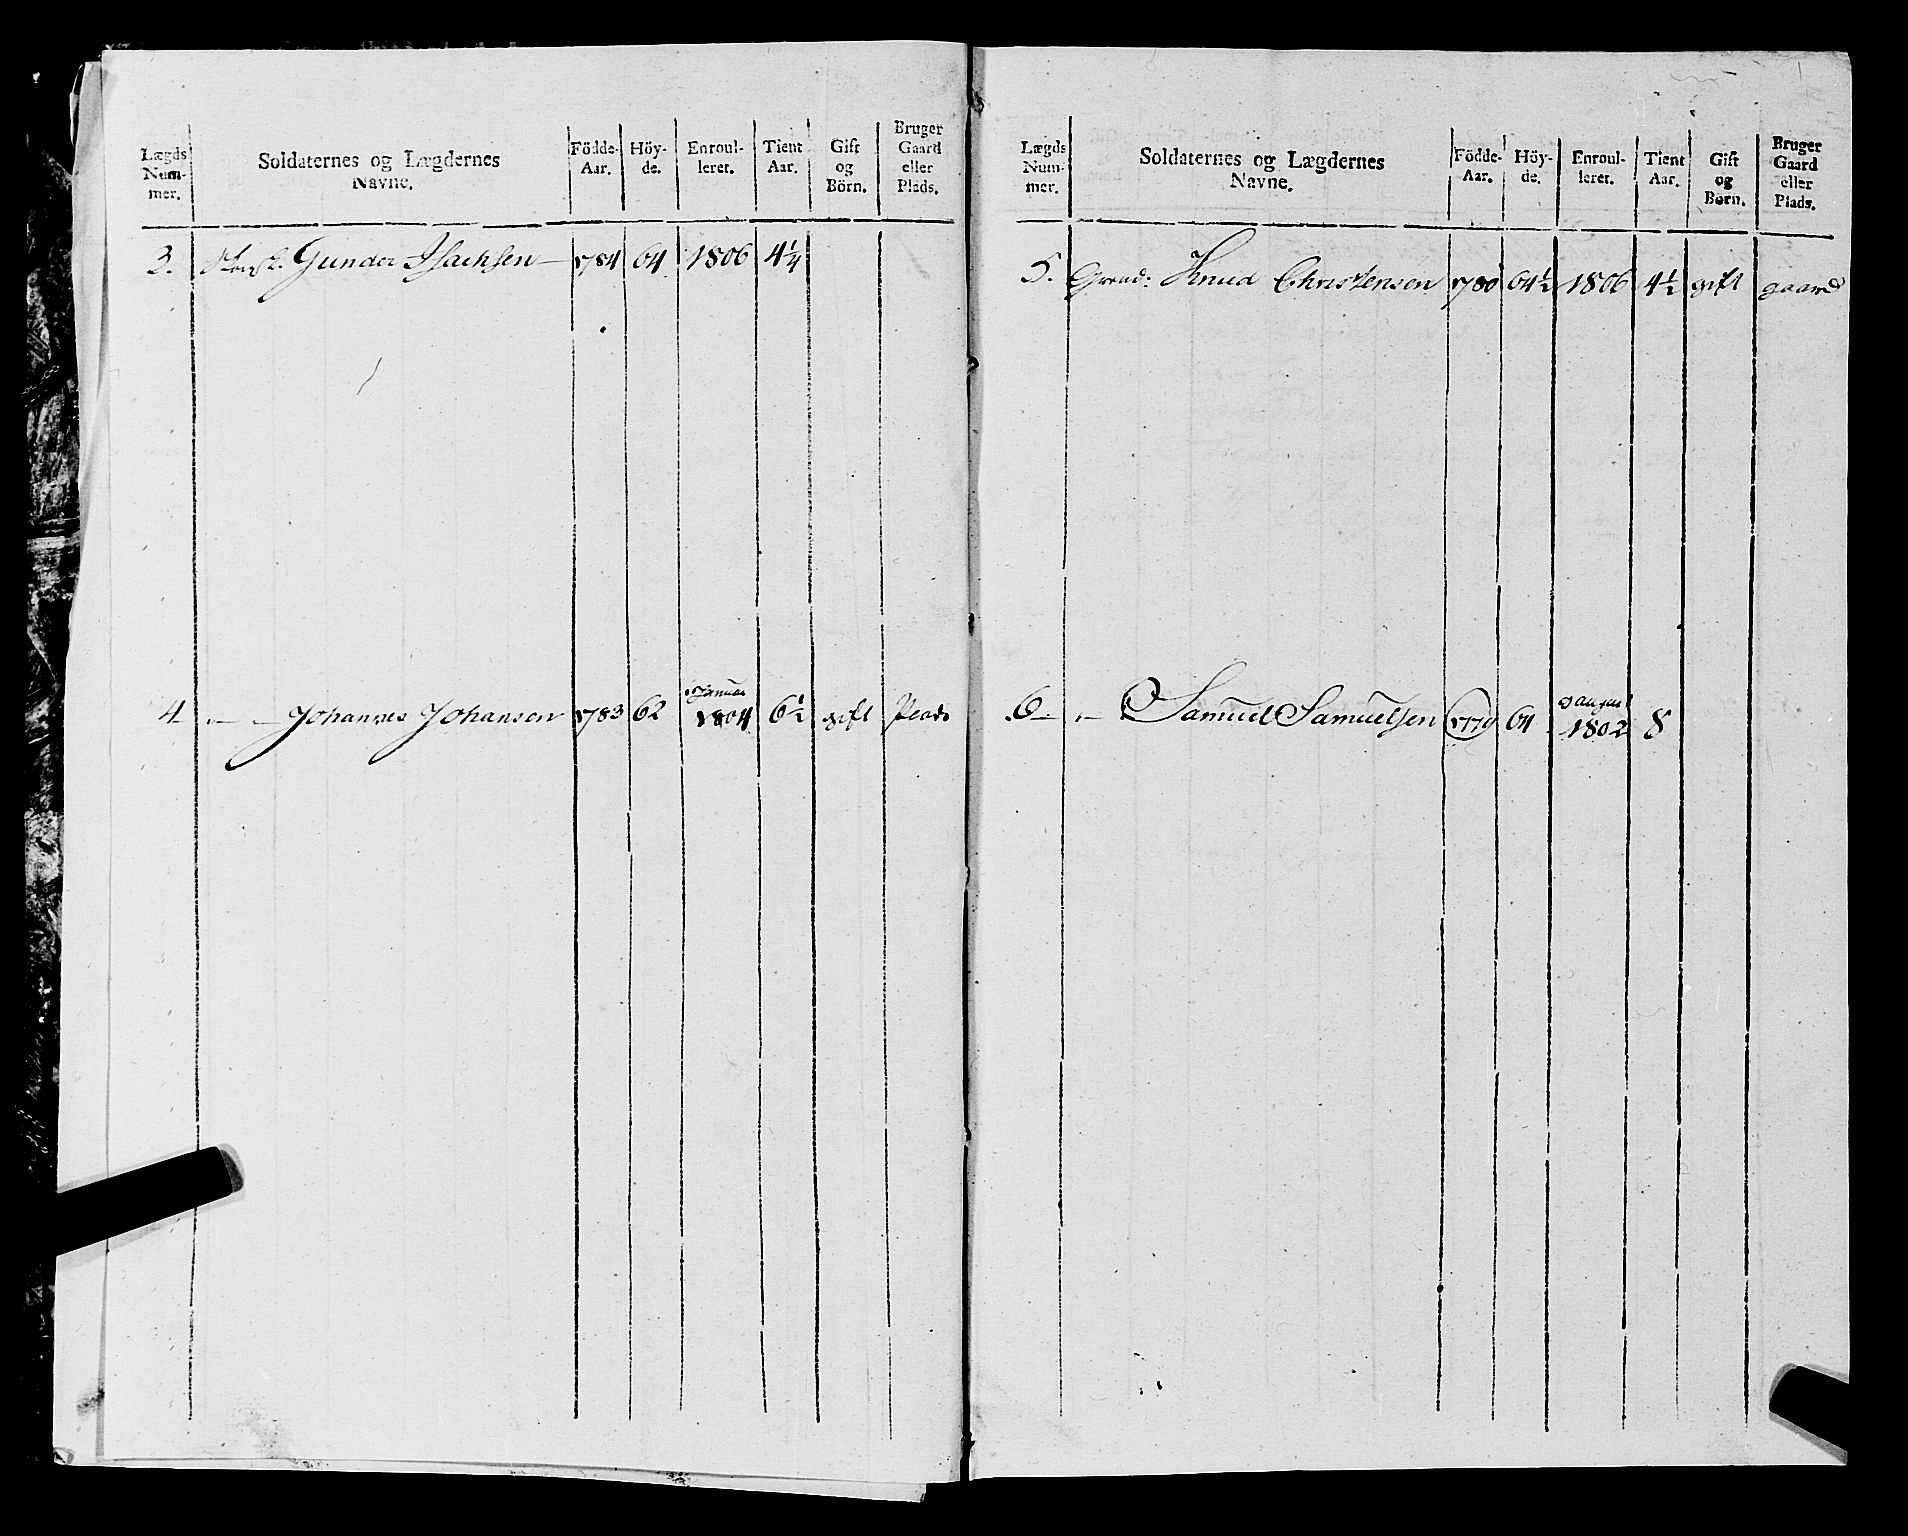 Lægds Num- mer. Soldaternes og Lægdernes Navne. Födde- Aar. Höy- de. Enroul- leret. Tient Aar. Gift og Börn. Bruger Gaard eller Plads.
3. Gunder Isachsen 1784 64 1806 4¼
Januar
4 – – Johannes Johansen 1783 62 1804 6½ gift Plads
Lægds Num- mer. Soldaternes og Lægdernes Navne. Födde- Aar. Höy- de. Enroul- leret. Tient Aar. Gift og Börn. Bruger Gaard eller Plads.
5. Grend: Knud Christensen 1780 64½ 1806 4½ gift gaard
august
6 – – Samuel Samuelsen 1779 64 1802 8